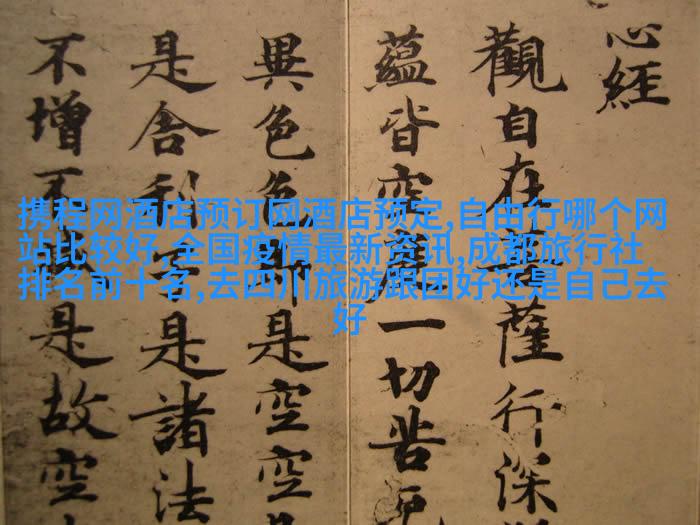 心經
觀自在菩薩行深
蘊皆空度一切苦厄
異色色即是空空
是舍利子是諸法
不增不是故空
携程网酒店预订网酒店预定,自由行哪个网
站比较好,全国疫情最新资讯,成都旅行社
排名前十名,去四川旅游跟团好还是自己去
好